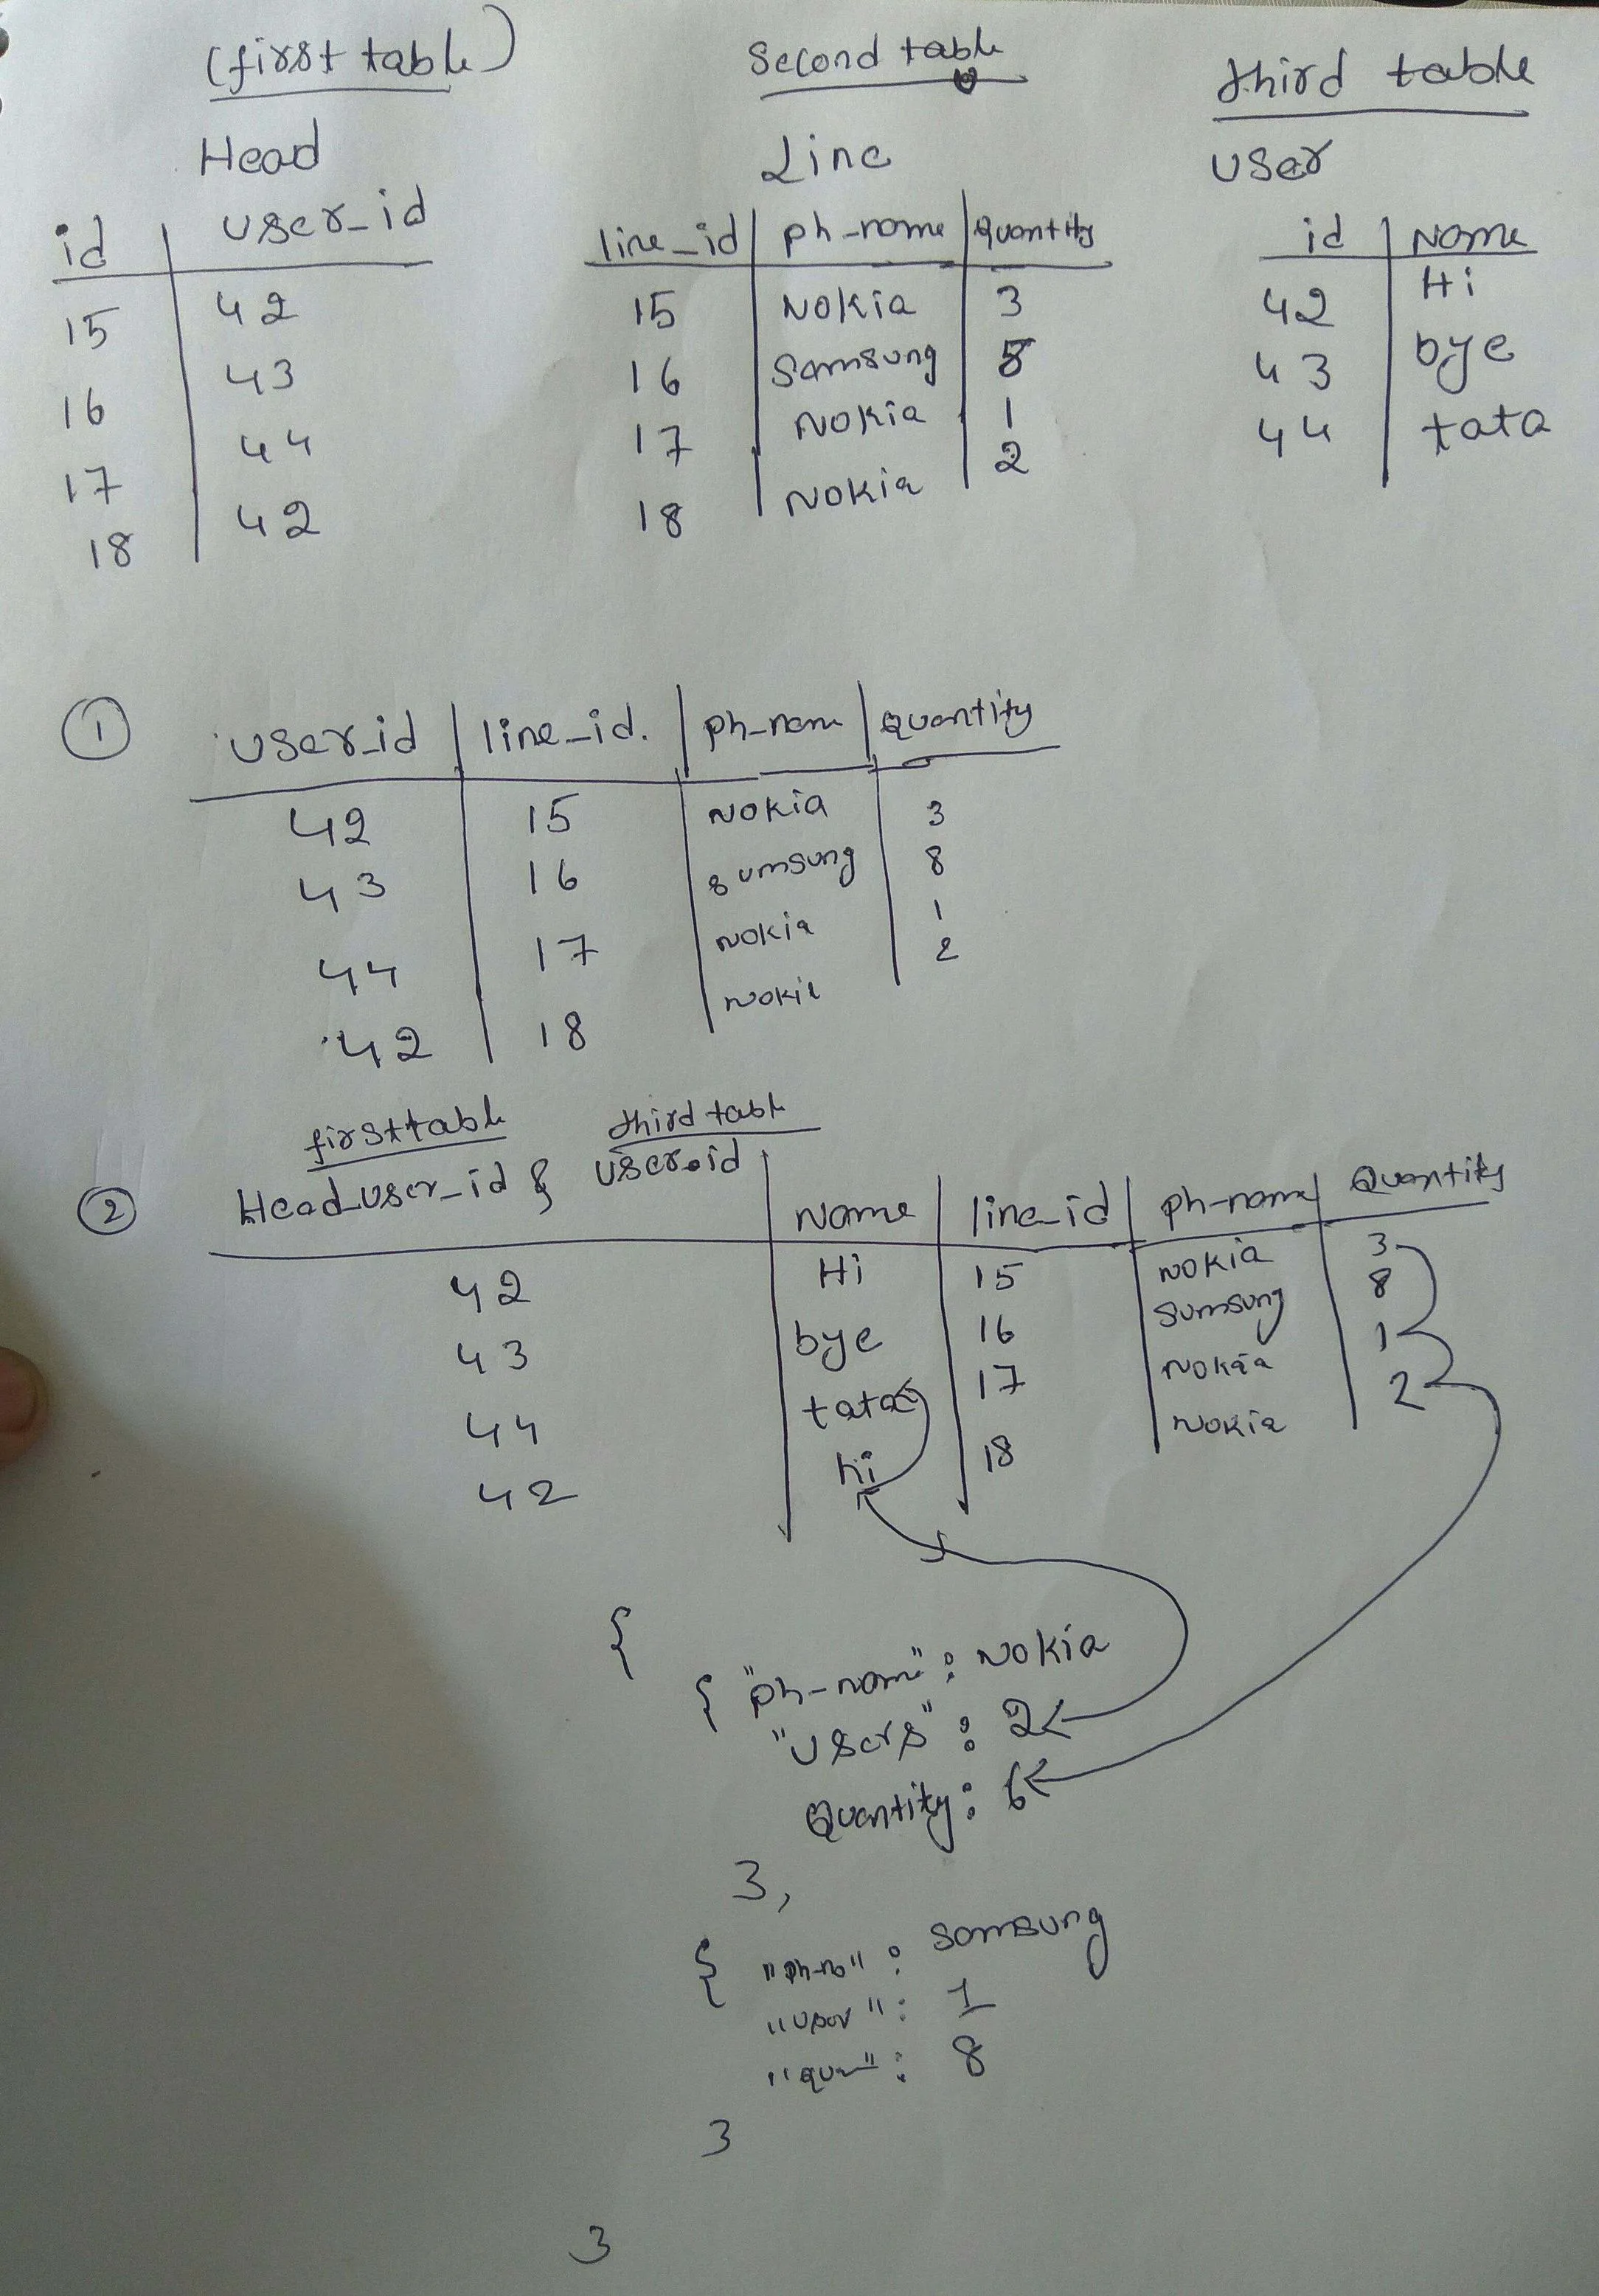 (first table)
Head
id | user_id
15 | 42
16 | 43
17 | 44
18 | 42
Second table
Line
line_id | ph-name | Quantity
15 | Nokia | 3
16 | Samsung | 8
17 | Nokia | 1
18 | Nokia | 2
third table
User
id | Name
42 | Hi
43 | bye
44 | tata
1
user_id | line_id. | ph-name | Quantity
42 | 15 | Nokia | 3
43 | 16 | Sumsung | 8
44 | 17 | Nokia | 1
42 | 18 | Nokia | 2
2
first table third table
Head_user_id & user.id | Name | line_id | ph-name | Quantity
42 | Hi | 15 | Nokia | 3
43 | bye | 16 | Sumsung | 8
44 | tata | 17 | Nokia | 1
42 | hi | 18 | Nokia | 2
{
{ "ph-name" : Nokia
"users" : 2
Quantity : 6
},
{ "ph-n" : Samsung
"user" : 1
"qua" : 8
}
}